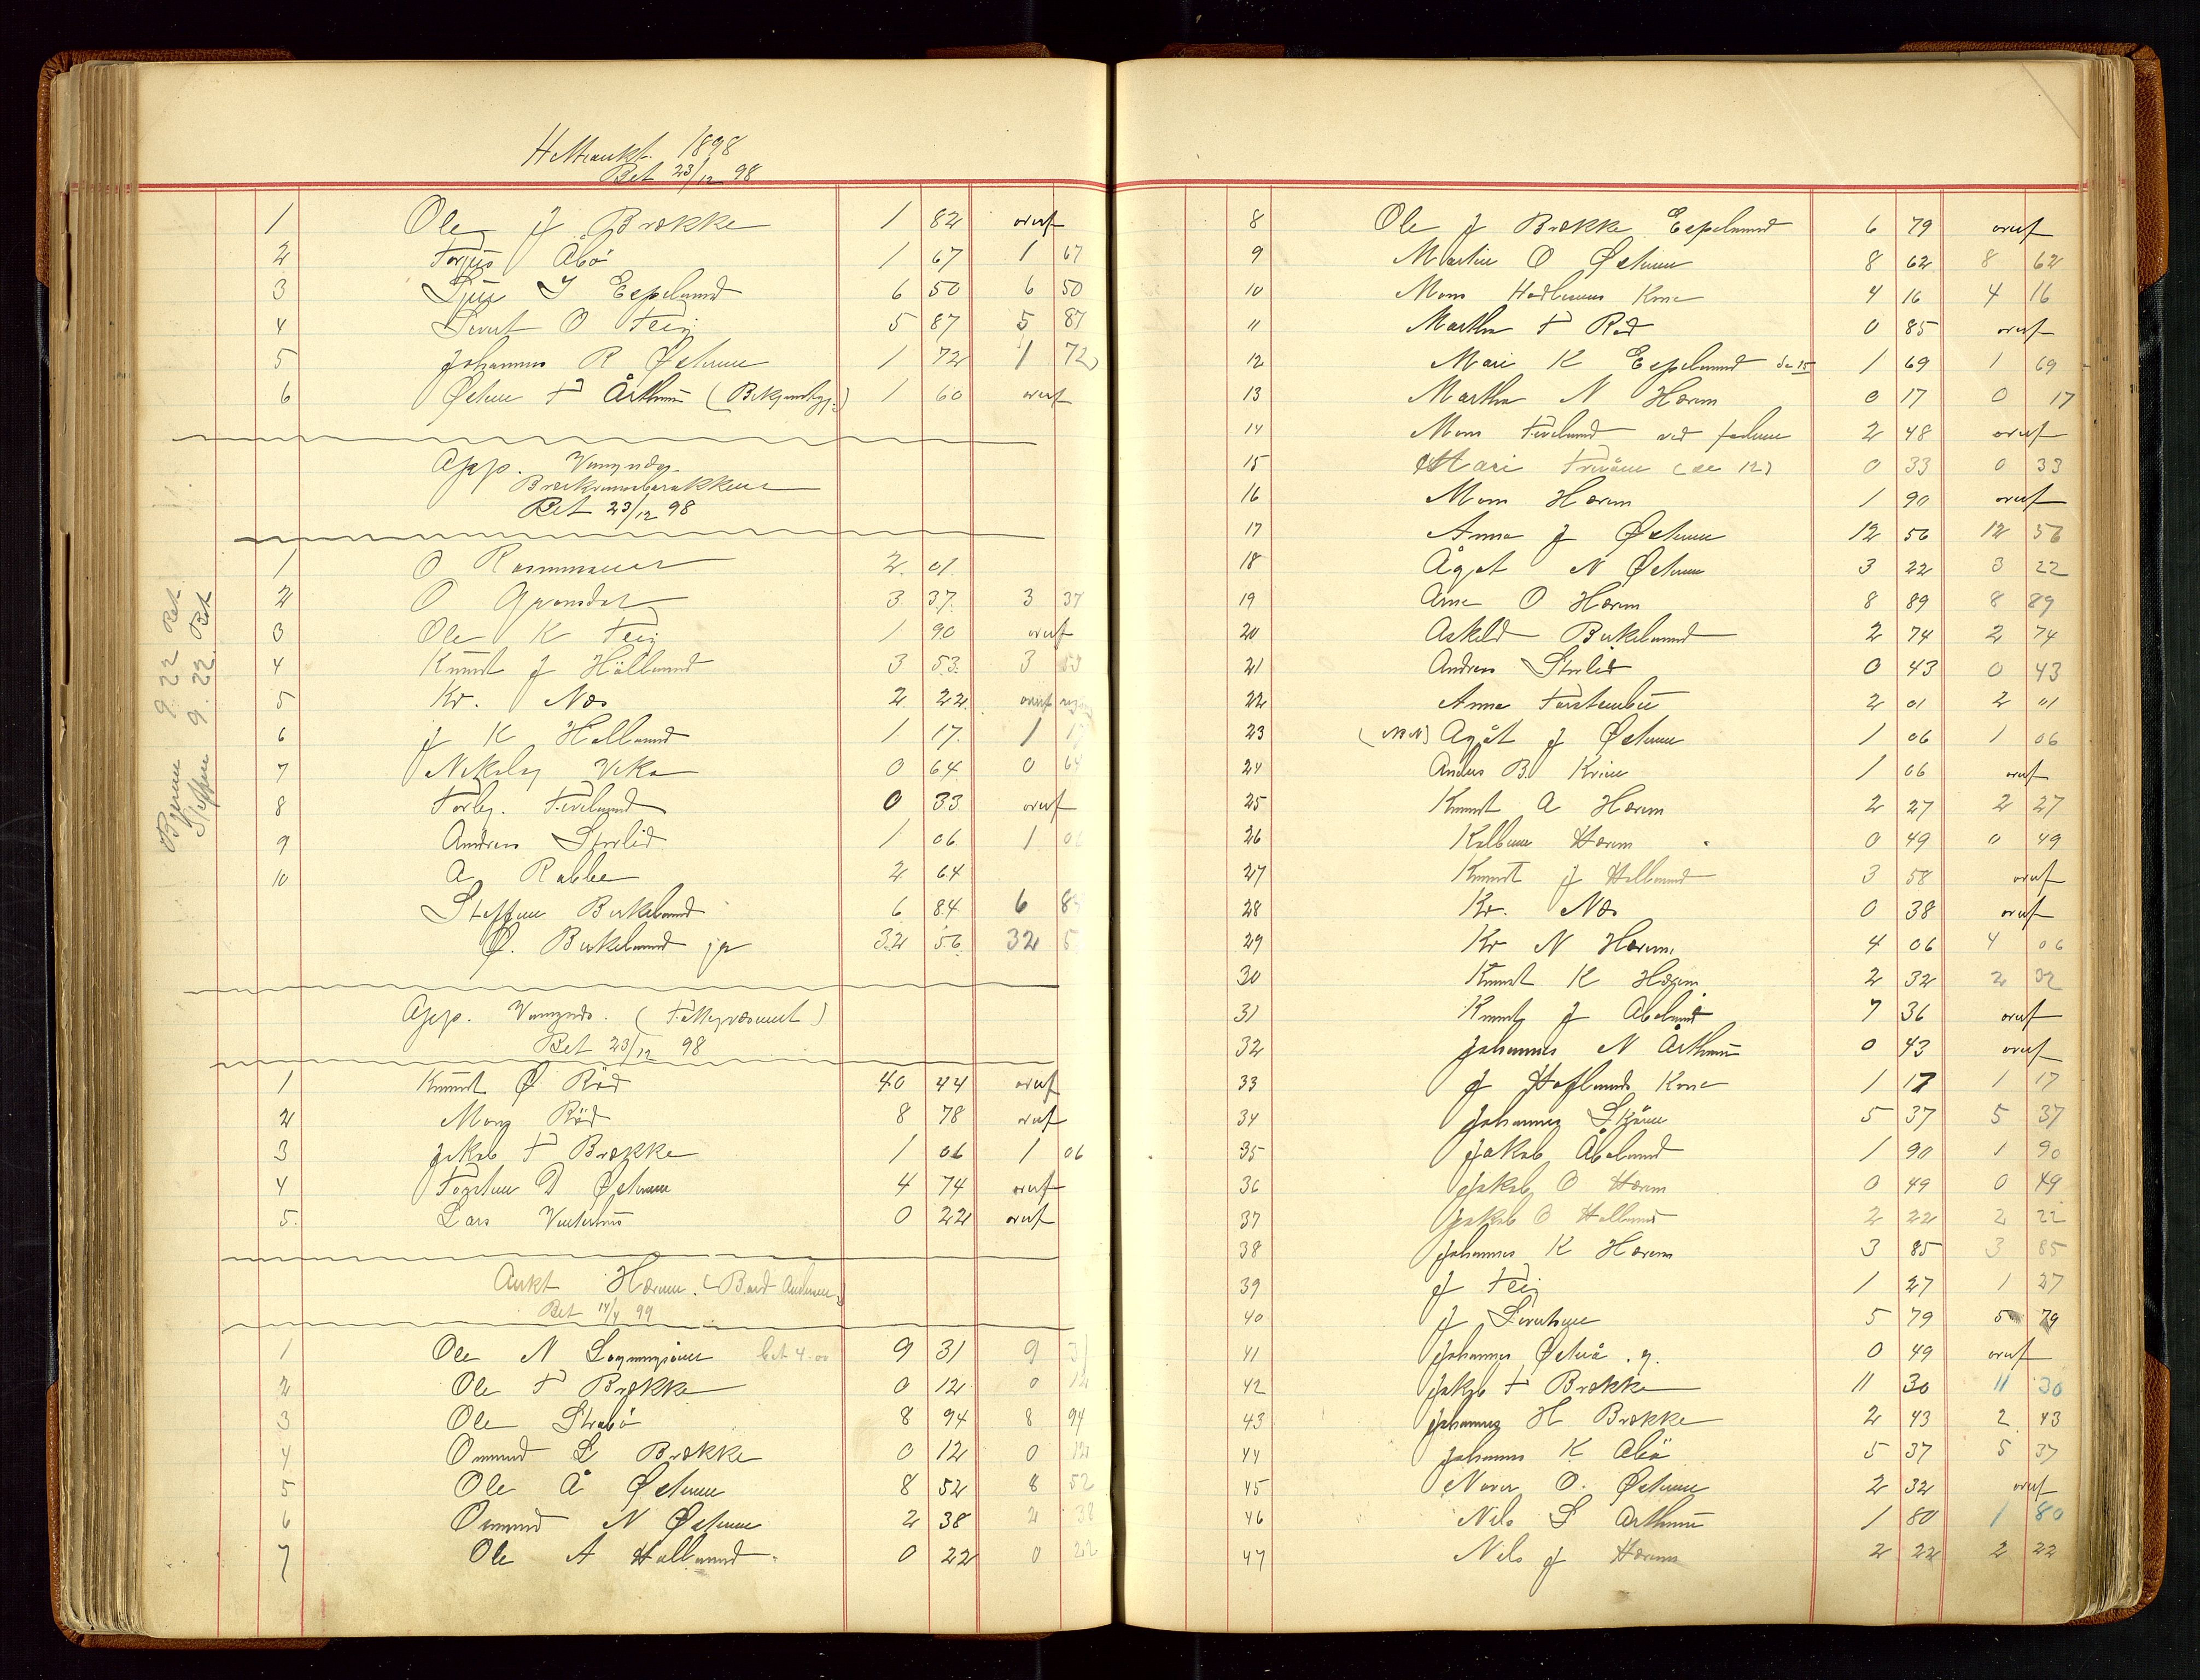 1898
Bet 23/12 98
1 Ole J Brække 1 82 overf
2 Torjus Åbö 1 67 1 67
3 Sjur I Espeland 6 50 6 50
4 Sivert O Teig 5 87 5 87
5 Johannes R Østrem 1 72 1 72
6 Østen T Årthun 1 60 overf
App.
Bet 23/12 98
1 O Rasmussen 2. 01.
2 O Grønsdal 3 37. 3 37
3 Ole K Teig 1 90 overf
4 Knut J Hålland 3 53. 3 53
5 Kr. Næs 2 22. overf
6 J K Halland 1 17. 1 17
7 Nikolay Vika 0 64. 0 64
8 Torbj. Tveland 0 33 overf
9 Andreas Storlid 1 06 1 06
10 A Rabbe 2 64
Steffen Birkeland 6 84 6 84
Ø. Birkeland jr 32 56 32 5
Bjerum 9. 22 Bet
Steffen 9. 22. Bet
App.
Bet 23/12 98
1 Knut Ø Röd 40 44 overf
2 Mons Röd 8 78 overf
3 Jakob T Brække 1 06 1 06
4 Torsten D Østrem 4 74 overf
5. Lars Vinterhus 0 22 overf
Aukt Hærem. (Bård Andersen)
Bet 14/4 99
1 Ole N bet 4.00 9 31 9 31
2 Ole T Brække 0 12 0 12
3 Ole Strabö 8 94 8 94
4 Ommund L Brække 0 12 0 12
5 Ole Å Østrem 8 52 8 52
6 Ommund N Østrem 2 38 2 38
7 Ole A Halland. 0 22 0 22
8 Ole J Brække Espeland 6 79 overf
9 Martin O Østrem 8 62 8 62
10 Mons Kone 4 16 4 16
11 Martha T Röd 0 85 overf
12 Mari K Espeland se 15 1 69 1 69
13 Martha N Hærem 0 17 0 17
14 Mons Tveland ved 2 48 overf
15 Mari (se 12) 0 33 0 33
16 Mons Hærem 1 90 overf
17 Anna J Østrem 12 56 12 56
18 Ågot N Østrem 3 22 3 22
19 Arne O Hærem 8 89 8 89
20 Askeld Birkeland 2 74 2 74
21 Andreas Storlid 0 43 0 43
22 Anna 2 01 2 01
23 Agåt J Østrem 1 06 1 06
24 Anders B. 1 06 overf
25 Knut A Hærem 2 27 2 27
26 Kolbein Hærem 0 49 0 49
27 Knut J Halland 3 58 overf
28 Kr. Næs 0 38 overf
29 Kr N Hærem. 4 06 4 06
30 Knut K Hærem 2 32 2 32
31 Knut J Åbeland 7 36 overf
32 Johannes N Årthun 0 43 overf
33 J Kone 1 17 1 17
34 Johannes 5 37 5 37
35 Jakob Åbeland 1 90 1 90
36 Jakob O Hærem 0 49 0 49
37 Jakob O Halland 2 22 2 22
38 Johannes K Hærem 3 85 3 85
39 J Teig 1 27 1 27
40 J Sivertsen 5 79 5 79
41 Johannes 0 49 overf
42 Jakob T Brække 11 30 11 30
43 Johannes H Brække 2 43 2 43
44 Johannes K Åbö 5 37 5 37
45 O. Østrem 2 32 overf
46 Nils S Årthun 1 80 1 80
47 Nils J Hærem 2 22 2 22